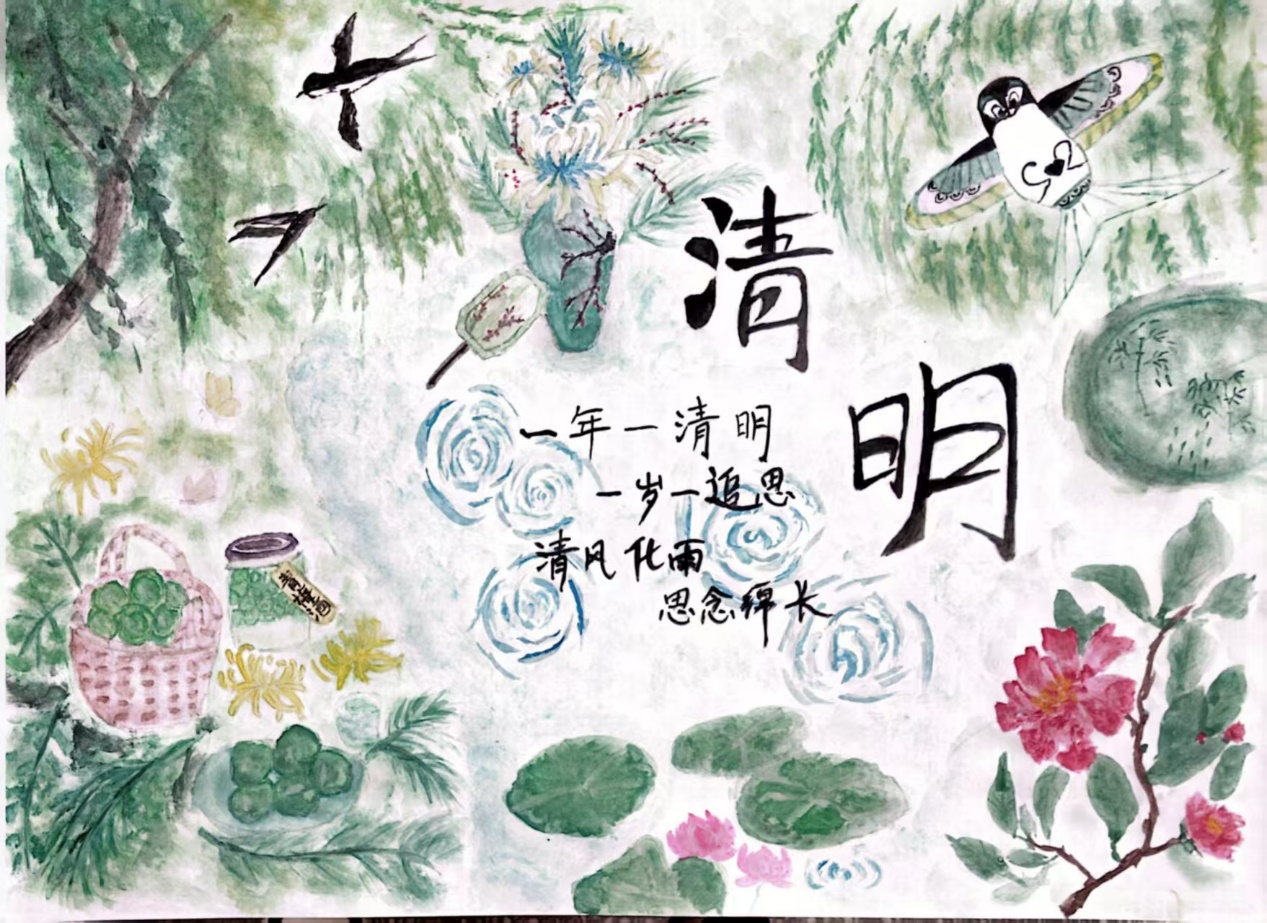 清
明
一年一清明
一岁一追思
清风化雨
思念绵长